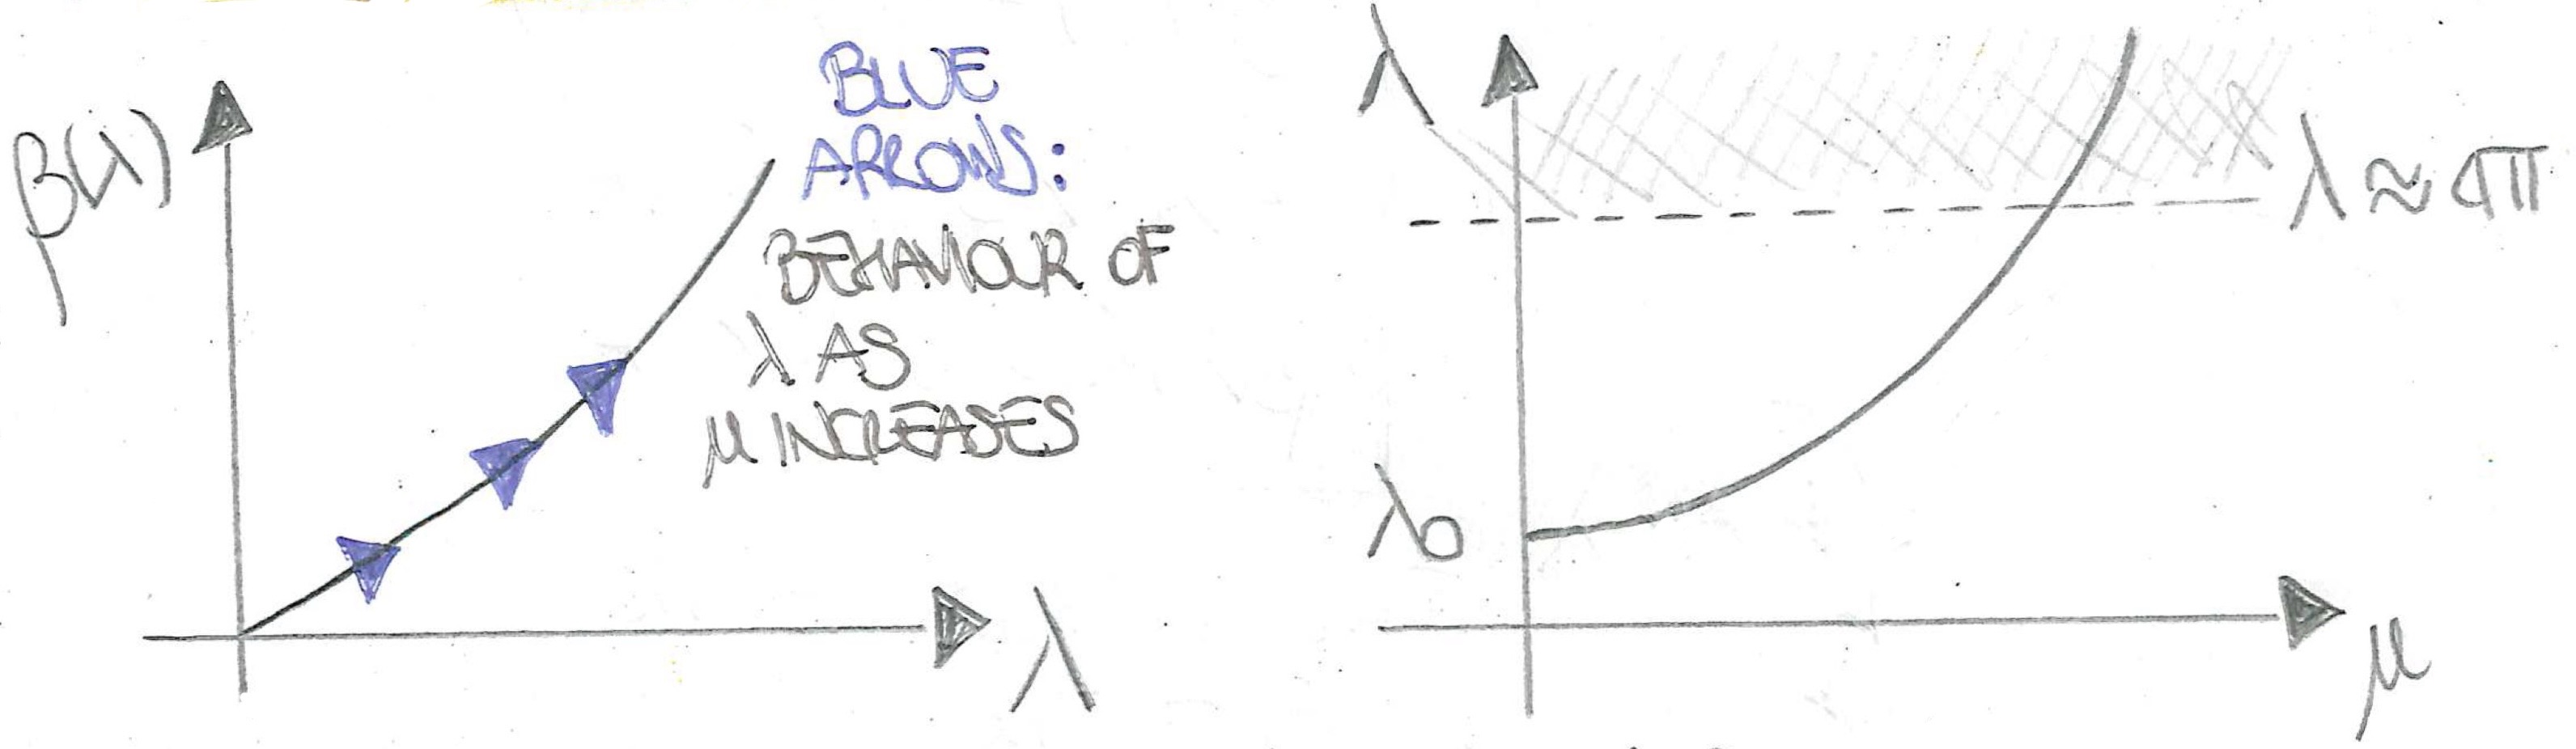 β(λ)
BLUE
ARROWS:
BEHAVIOUR OF
λ AS
μ INCREASES
λ
λ
λ ≈ 4π
λ0
μ